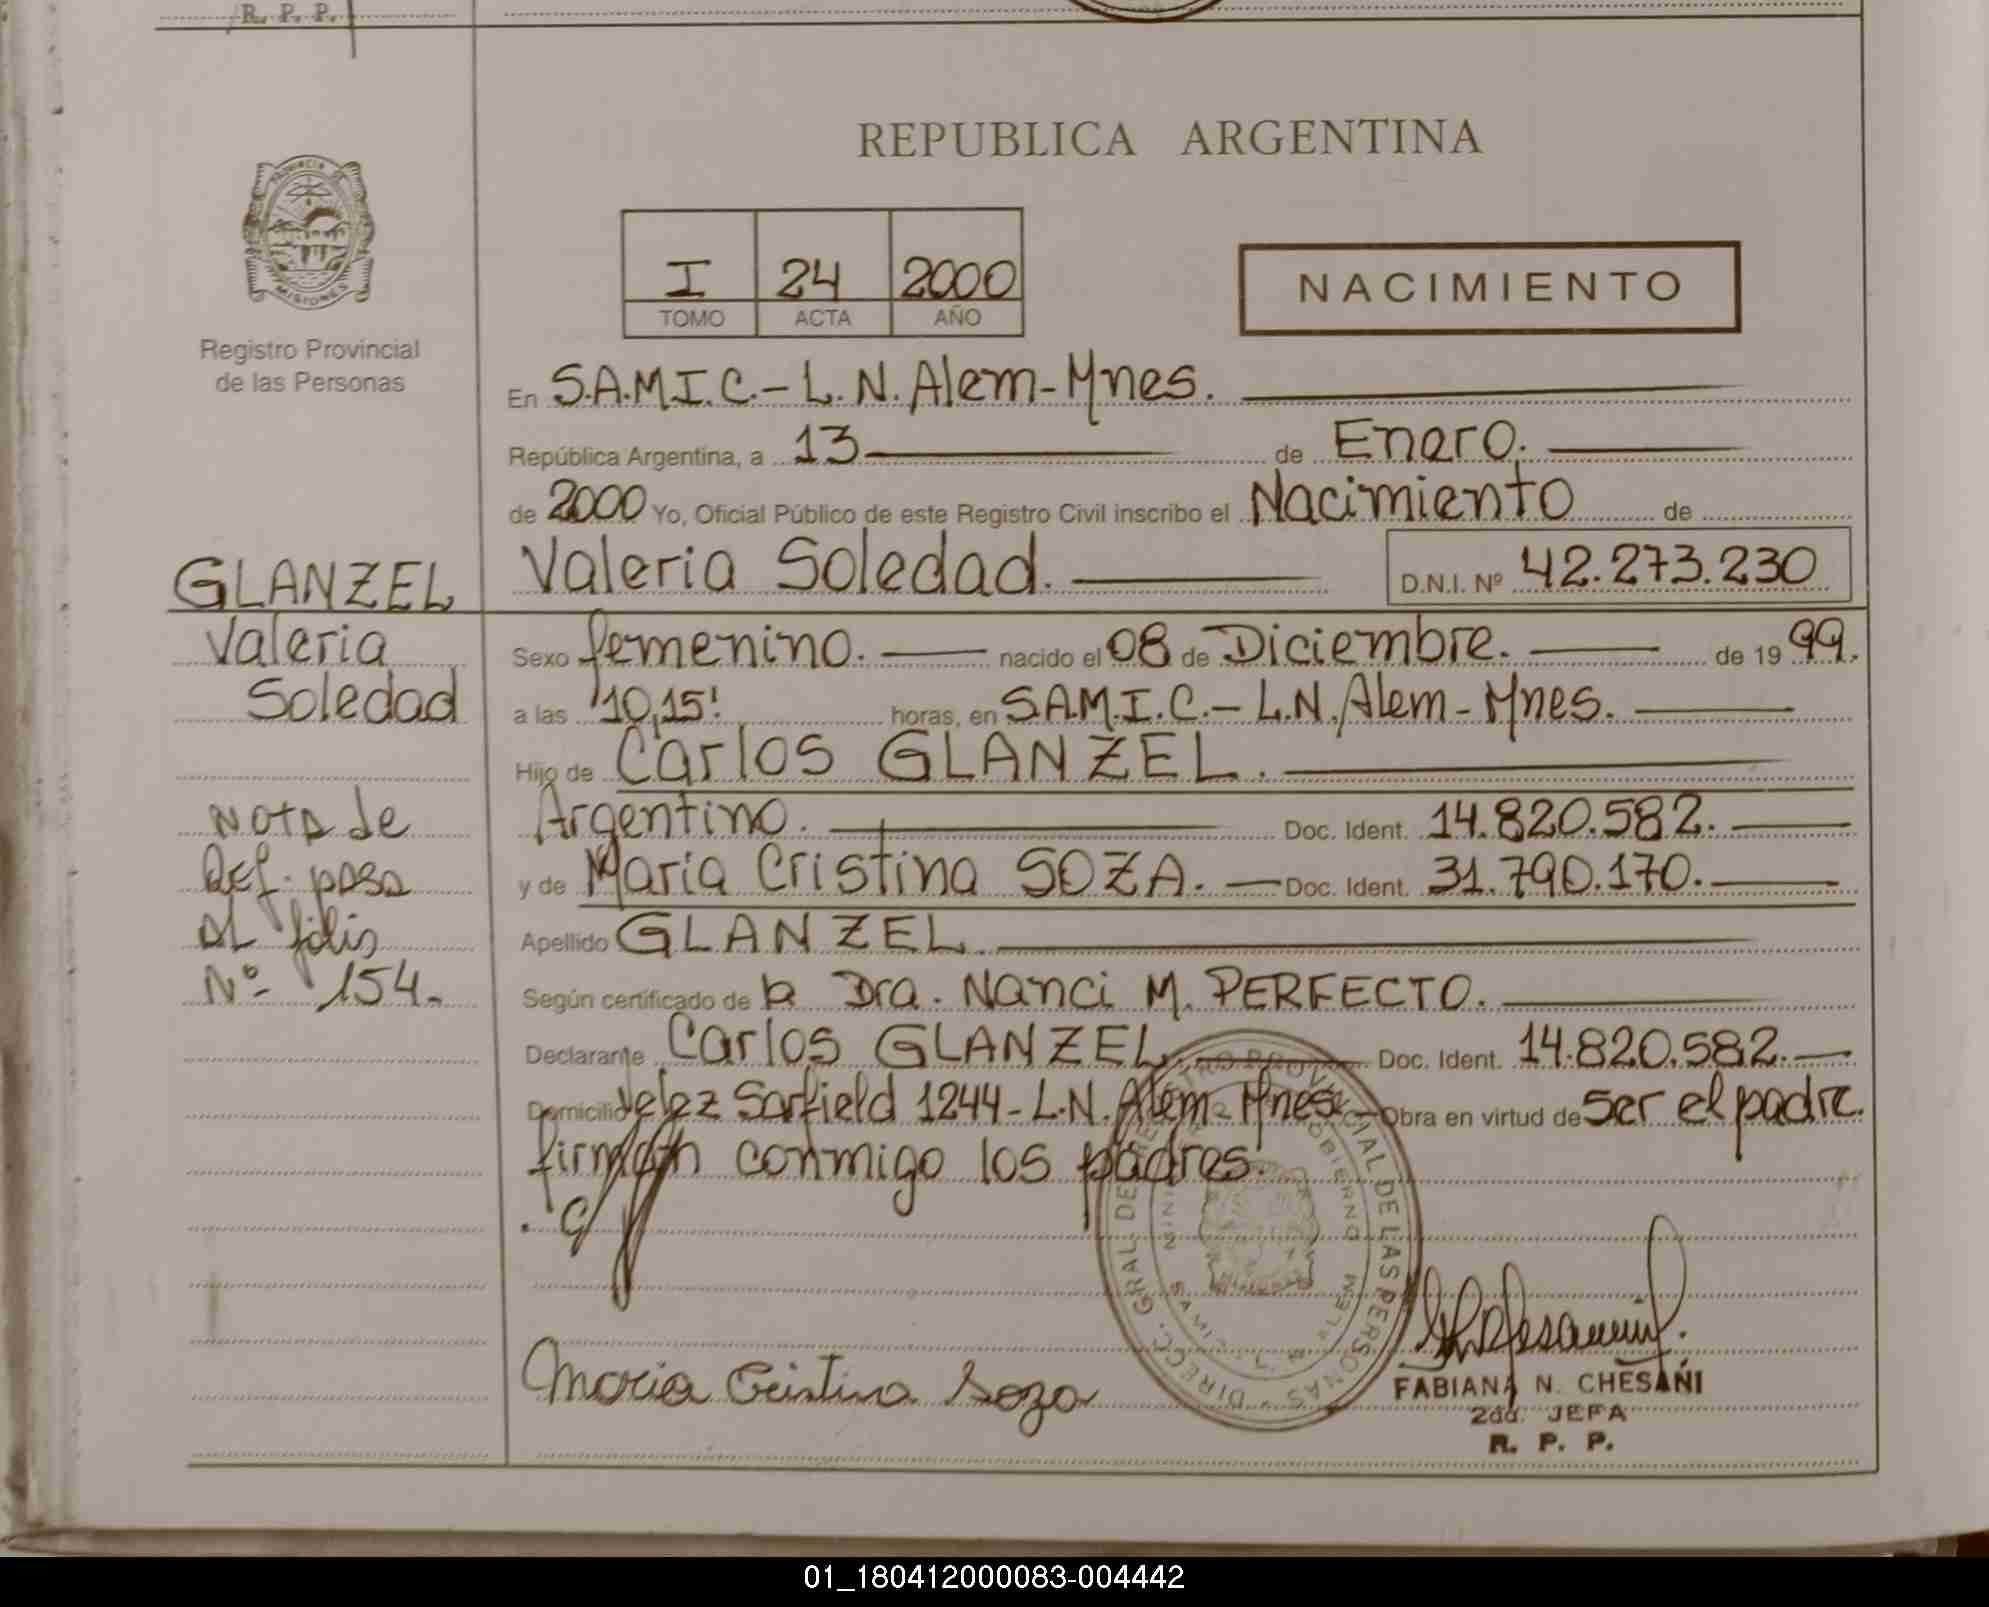 R. P. P.
REPUBLICA ARGENTINA
PROVINCIA DE
MISIONES
Registro Provincial
de las Personas
I 24 2000
TOMO ACTA AÑO
NACIMIENTO
En S.A.M.I.C.- L.N. Alem-Mnes.
República Argentina, a 13 de Enero.
de 2000 Yo, Oficial Público de este Registro Civil inscribo el Nacimiento de
Valeria Soledad. D.N.I. Nº 42.273.230
GLANZEL
Valeria
Soledad
Nota de
Ref. pasa
al folio
Nº 154.
Sexo femenino. nacido el 08 de Diciembre. de 1999.
a las "10,15' horas, en S.A.M.I.C.- L.N. Alem - Mnes.
Hijo de Carlos GLANZEL.
Argentino. Doc. Ident. 14.820.582.
y de Maria Cristina SOZA. Doc. Ident. 31.790.170.
Apellido GLANZEL
Según certificado de la Dra. Nanci M. PERFECTO.
Declarante Carlos GLANZEL. Doc. Ident. 14.820.582.
Domicilio Velez Sarfield 1244- L.N. Alem-Mnes. Obra en virtud de ser el padre.
firman conmigo los padres.
DIRECC. GRAL DEL REGISTRO PROVINCIAL DE LAS PERSONAS
Maria Cristina Soza
FABIANA N. CHESAÑI
2da. JEFA
R. P. P.
01_180412000083-004442